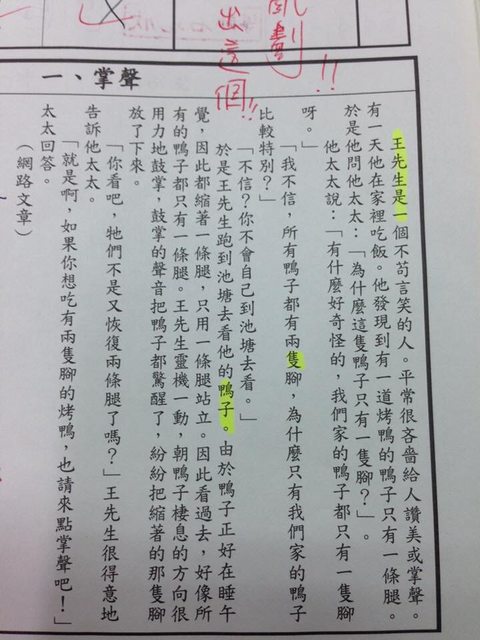 亂劃!!
出這個!!
一、掌聲
王先生是一個不苟言笑的人。平常很吝嗇給人讚美或掌聲。
有一天他在家裡吃飯。他發現到有一道烤鴨的鴨子只有一條腿。
於是他問他太太:「為什麼這隻鴨子只有一隻腳?」。
他太太說:「有什麼好奇怪的,我們家的鴨子都只有一隻腳
呀。」
「我不信,所有鴨子都有兩隻腳,為什麼只有我們家的鴨子
比較特別?」
「不信?你不會自己到池塘去看。」
於是王先生跑到池塘去看他的鴨子。由於鴨子正好在睡午
覺,因此都縮著一條腿,只用一條腿站立。因此看過去,好像所
有的鴨子都只有一條腿。王先生靈機一動,朝鴨子棲息的方向很
用力地鼓掌,鼓掌的聲音把鴨子都驚醒了,紛紛把縮著的那隻腳
放了下來。
「你看吧,牠們不是又恢復兩條腿了嗎?」王先生很得意地
告訴他太太。
「就是啊,如果你想吃有兩隻腳的烤鴨,也請來點掌聲吧!」
太太回答。
(網路文章)